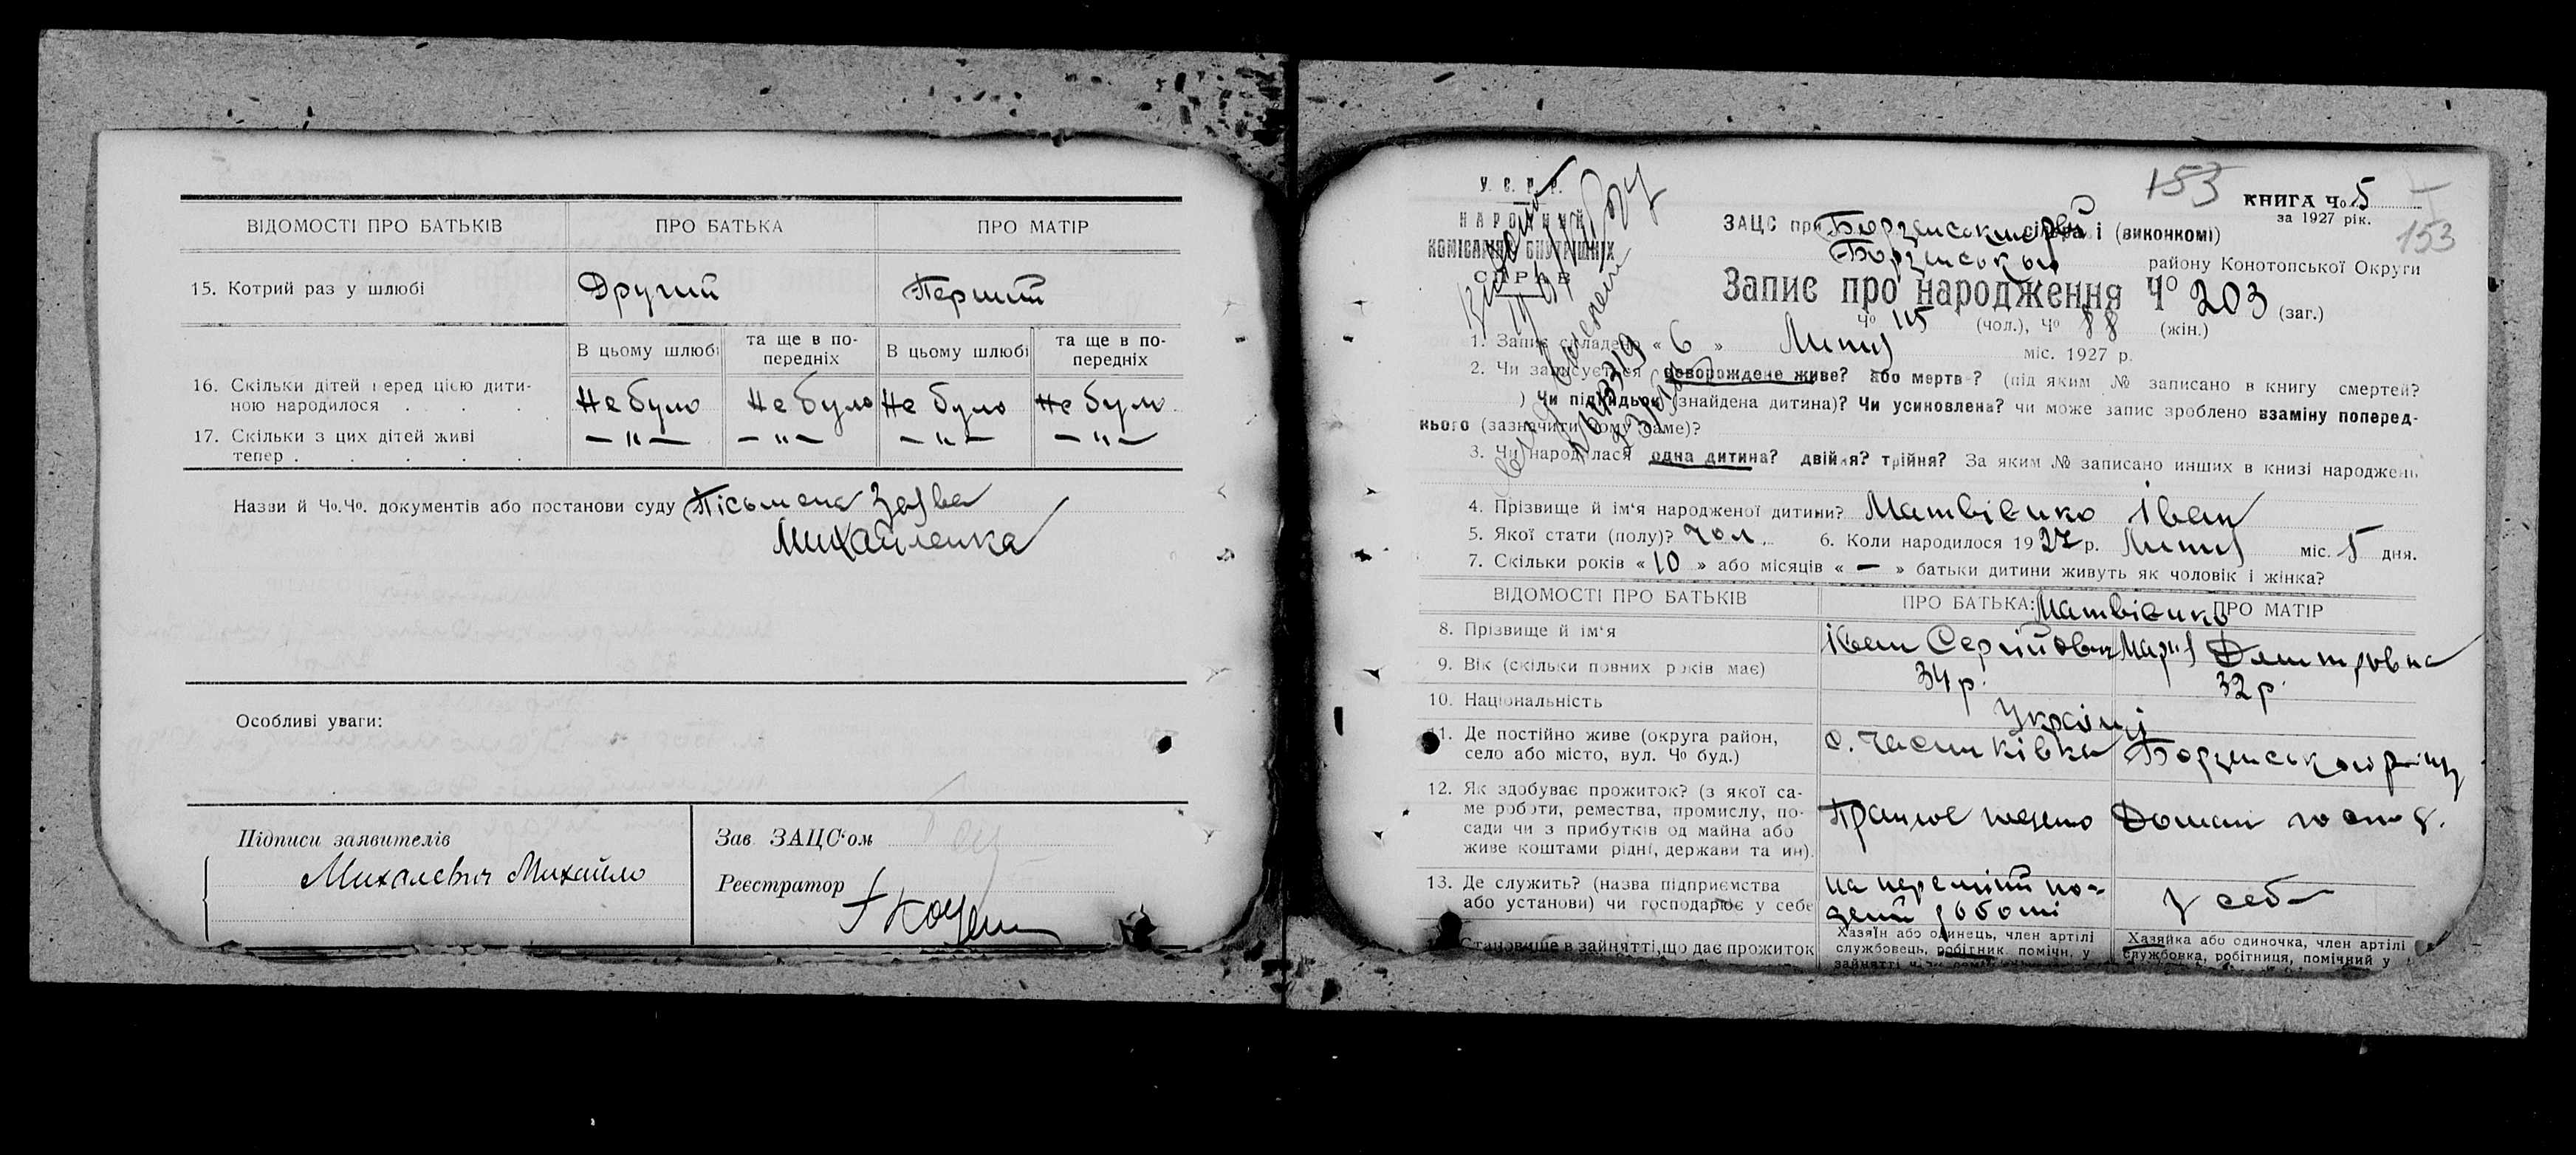 ВІДОМОСТІ ПРО БАТЬКІВ
ПРО БАТЬКА
ПРО МАТІР
15. Котрий раз у шлюбі
Другий
Перший
В цьому шлюбі
та ще в по-
передніх
В цьому шлюбі
та ще в по-
передніх
16. Скільки дітей перед цією дити-
ною народилося
Не було
Не було
Не було
Не було
17. Скільки з цих дітей живі
тепер
— " —
— " —
— " —
— " —
Назви й Чо.Чо. документів або постанови суду Пісьмена Заява
Михайленка
Особливі уваги:
Підписи заявителів
Михалевич Михайло
Зав. ЗАЦС'ом
Реєстратор
153
КНИГА Чо 5
за 1927 рік.
153
У. С. Р. Р.
НАРОДНИЙ
КОМІСАРІЯТ ВНУТРІШНІХ
СПРАВ
ЗАЦС при Борзенському сільраді (виконкомі)
Борзенського району Конотопської Округи
Запис про народження Чо 203 (заг.)
Чо 115 (чол.), Чо 88 (жін.)
1. Запис складено « 6 » Липня міс. 1927 р.
2. Чи записується новорождене живе? або мертве? (під яким № записано в книгу смертей?
) Чи підкидьок (знайдена дитина)? Чи усиновлена? чи може запис зроблено взаміну поперед-
нього (зазначити чому саме)?
3. Чи народилася одна дитина? двійня? трійня? За яким № записано инших в книзі народжень
4. Прізвище й ім'я народженої дитини? Матвієнко Іван
5. Якої стати (полу)? чол. 6. Коли народилося 1927 р. Липня міс. 5 дня.
7. Скільки років « 10 » або місяців « — » батьки дитини живуть як чоловік і жінка?
ВІДОМОСТІ ПРО БАТЬКІВ
ПРО БАТЬКА:
ПРО МАТІР
Матвієнко
8. Прізвище й ім'я
Іван Сергійович
Марія Дмитровна
9. Вік (скільки повних років має)
34 р.
32 р.
10. Національність
Українці
11. Де постійно живе (округа район,
село або місто, вул. Чо буд.)
с. Часниківка Борзенського р-ну
12. Як здобуває прожиток? (з якої са-
ме роботи, ремества, промислу, по-
сади чи з прибутків од майна або
живе коштами рідні, держави та ин).
Домаш. господ.
13. Де служить? (назва підприємства
або установи) чи господарює у себе
у себе
14. Становище в зайнятті, що дає прожиток
Хазяїн або одинець, член артілі
службовець, робітник. помічн. у
Хазяйка або одиночка, член артілі
службовка, робітниця, помічний у